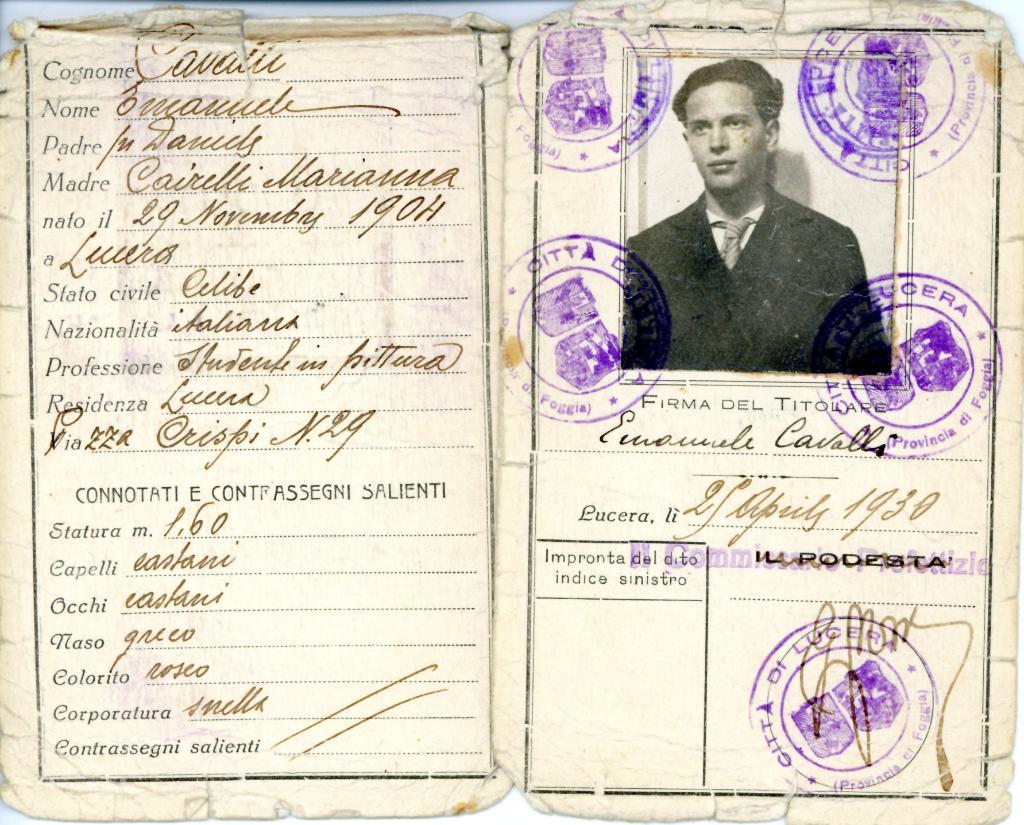 Cognome Cavalli
Nome Emanuele
Padre fu Daniele
Madre Cairelli Marianna
nato il 29 Novembre 1904
a Lucera
Stato civile Celibe
Nazionalità italiana
Professione Studente in pittura
Residenza Lucera
Piazza Crispi N. 29
CONNOTATI E CONTRASSEGNI SALIENTI
Statura m. 1,60
Capelli castani
Occhi castani
Naso greco
Colorito roseo
Corporatura snella
Contrassegni salienti
CITTÀ DI LUCERA
(Provincia di Foggia)
CITTÀ DI LUCERA
(Provincia di Foggia)
CITTÀ DI LUCERA
(Provincia di Foggia)
CITTÀ DI LUCERA
(Provincia di Foggia)
FIRMA DEL TITOLARE
Emanuele Cavalli
Lucera, lì 25 Aprile 1930
Il Commissario Prefettizio
IL PODESTA'
Impronta del dito
indice sinistro
CITTÀ DI LUCERA
(Provincia di Foggia)